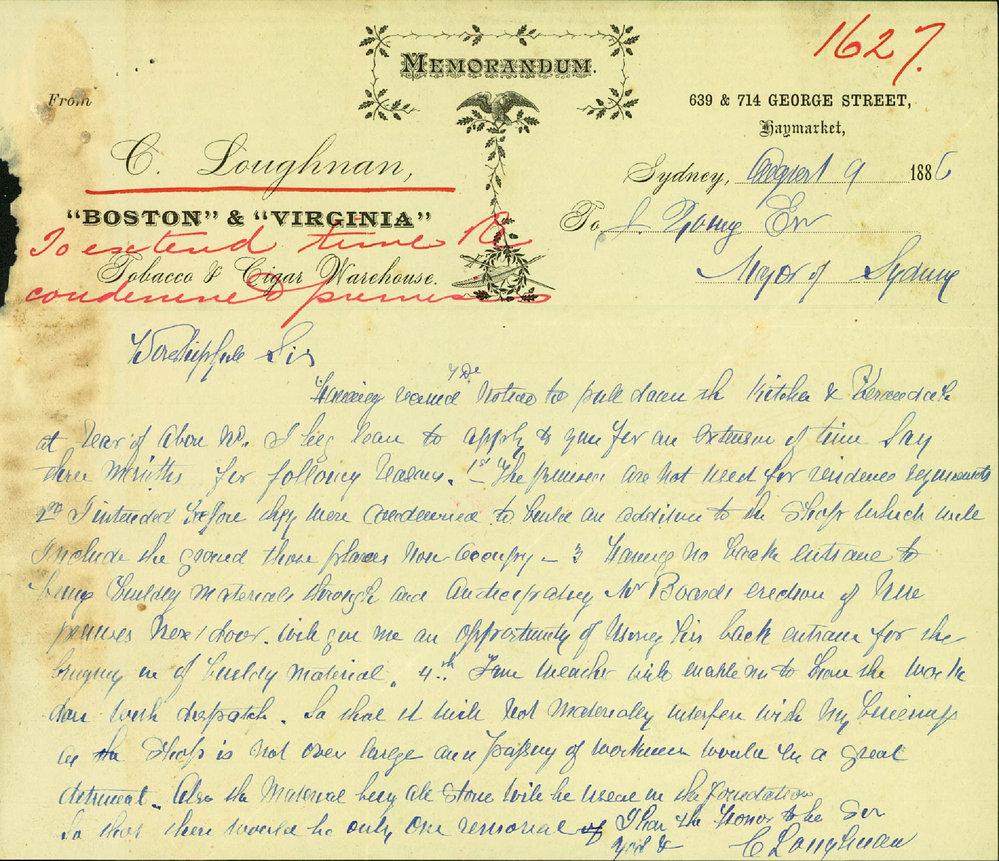 1627.
MEMORANDUM.
From
639 & 714 GEORGE STREET,
Haymarket,
C. Loughnan,
Sydney, August 9 1886
"BOSTON" & "VIRGINIA"
To J. Young Esq
To extend time Re
Tobacco & Cigar Warehouse.
Mayor of Sydney
condemned premises
Worshipful Sir
Having received Notice to pull down the Kitchen & Verandah
at Rear of above No. I beg leave to apply to you for an extension of time Say
three Months for following Reasons. 1st The premises are not used for residence
2nd I intended before they were condemned to build an addition to the Shop which will
Include the ground those places now occupy - 3 Having no back entrance to
bring building materials through and anticipating Mr Boards erection of New
premises Next door. will give me an opportunity of Using his back entrance for the
bringing in of building material. 4th Fine weather will enable me to have the work
done with despatch. So that it will Not Materially interfere with My business
as the Shop is not over large and passing of workmen would be a great
detriment. Also the Material being all Stone will be used in the foundation
So that there would be only one removal of I have the Honor to be Sir
Yours &
C Loughnan